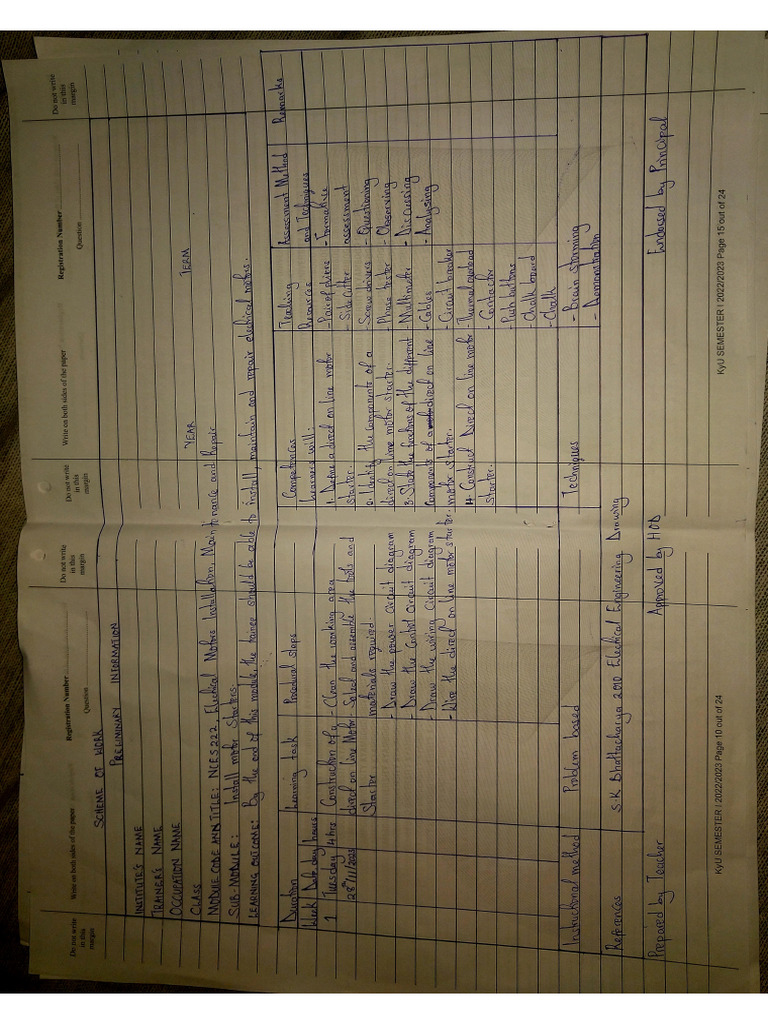 Do not write in this margin
Write on both sides of the paper
Registration Number
Question
Do not write in this margin
Do not write in this margin
Write on both sides of the paper
Registration Number
Question
Do not write in this margin
SCHEME OF WORK
PRELIMINARY INFORMATION
INSTITUTE'S NAME
TRAINER'S NAME
OCCUPATION NAME
CLASS YEAR TERM
MODULE CODE AND TITLE: NCES222, Electrical Motors Installation, Maintenance and Repair
SUB-MODULE: Install motor Starters.
LEARNING OUTCOME: By the end of this module, the trainee should be able to install, maintain and repair electrical motors.
Duration
Week Date/day hours
1 Tuesday 4 hrs
28th/11/2023
Learning task
Construction of a
direct on line Motor
Starter
Practical steps
- Clean the working area
- Select and assemble the tools and
materials required
- Draw the power circuit diagram
- Draw the Control circuit diagram
- Draw the wiring circuit diagram
- Wire the direct on line motor starter.
Competences
Learners will:
1. Define a direct on line motor
starter.
2. Identify the components of a
direct on line motor starter.
3. State the functions of the different
components of a direct on line
motor starter.
4. Construct Direct on line motor
starter.
Teaching
Resources
- Pair of pliers
- Side cutter
- Screw drivers
- Phase tester
- Multimeter
- Cables
- Circuit breaker
- Thermal overload
- Contactor
Push buttons
Chalk board
- Chalk
Assessment Method
and Techniques
- Formative
assessment
- Questioning
- Observing
- Discussing
- Analysing
Remarks
Instructional method Problem based Techniques - Brain storming
- Demonstration
References S.K Bhattacharya 2010 Electrical Engineering Drawing
Prepared by Teacher Approved by HOD Endorsed by Principal
KyU SEMESTER I 2022/2023 Page 10 out of 24
KyU SEMESTER I 2022/2023 Page 15 out of 24